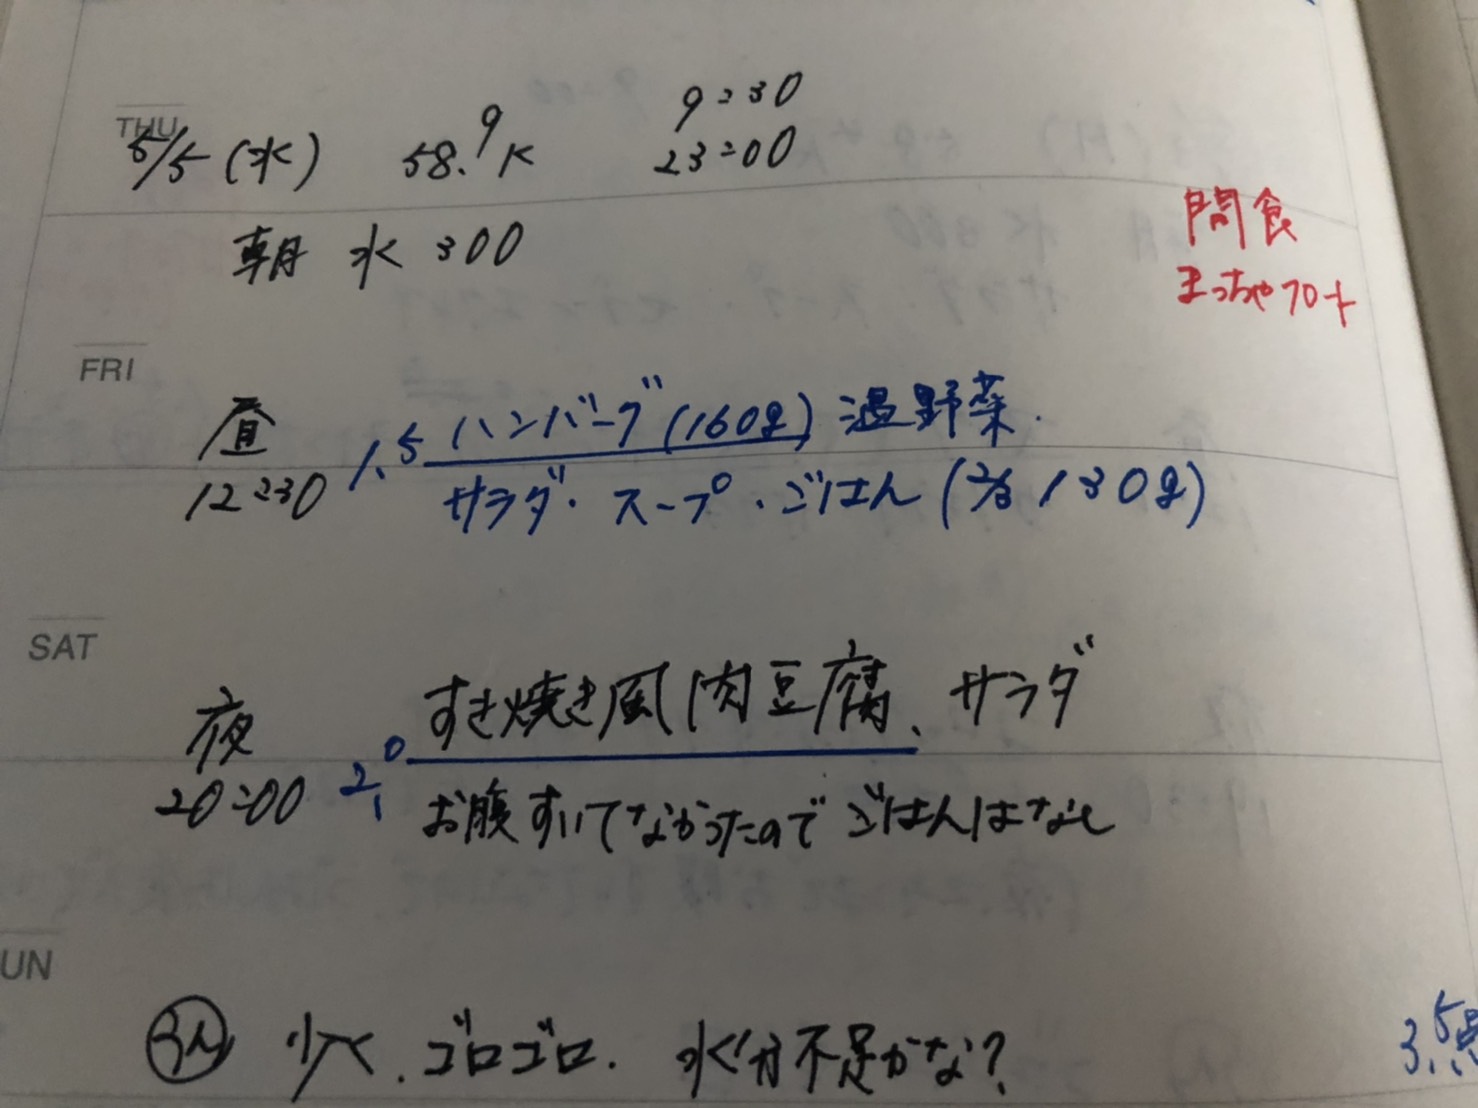 THU
5/5(水) 58.9K 9:30
23:00
朝 水 300
間食
まっちゃフロート
FRI
昼 1.5 ハンバーグ(160g) 温野菜.
12:30 サラダ・スープ・ごはん(2/3 130g)
SAT
夜 すき焼き風肉豆腐、サラダ
20:00 2.0
お腹すいてなかったので ごはんはなし
UN
少人. ゴロゴロ. 水分不足かな?
3.5点